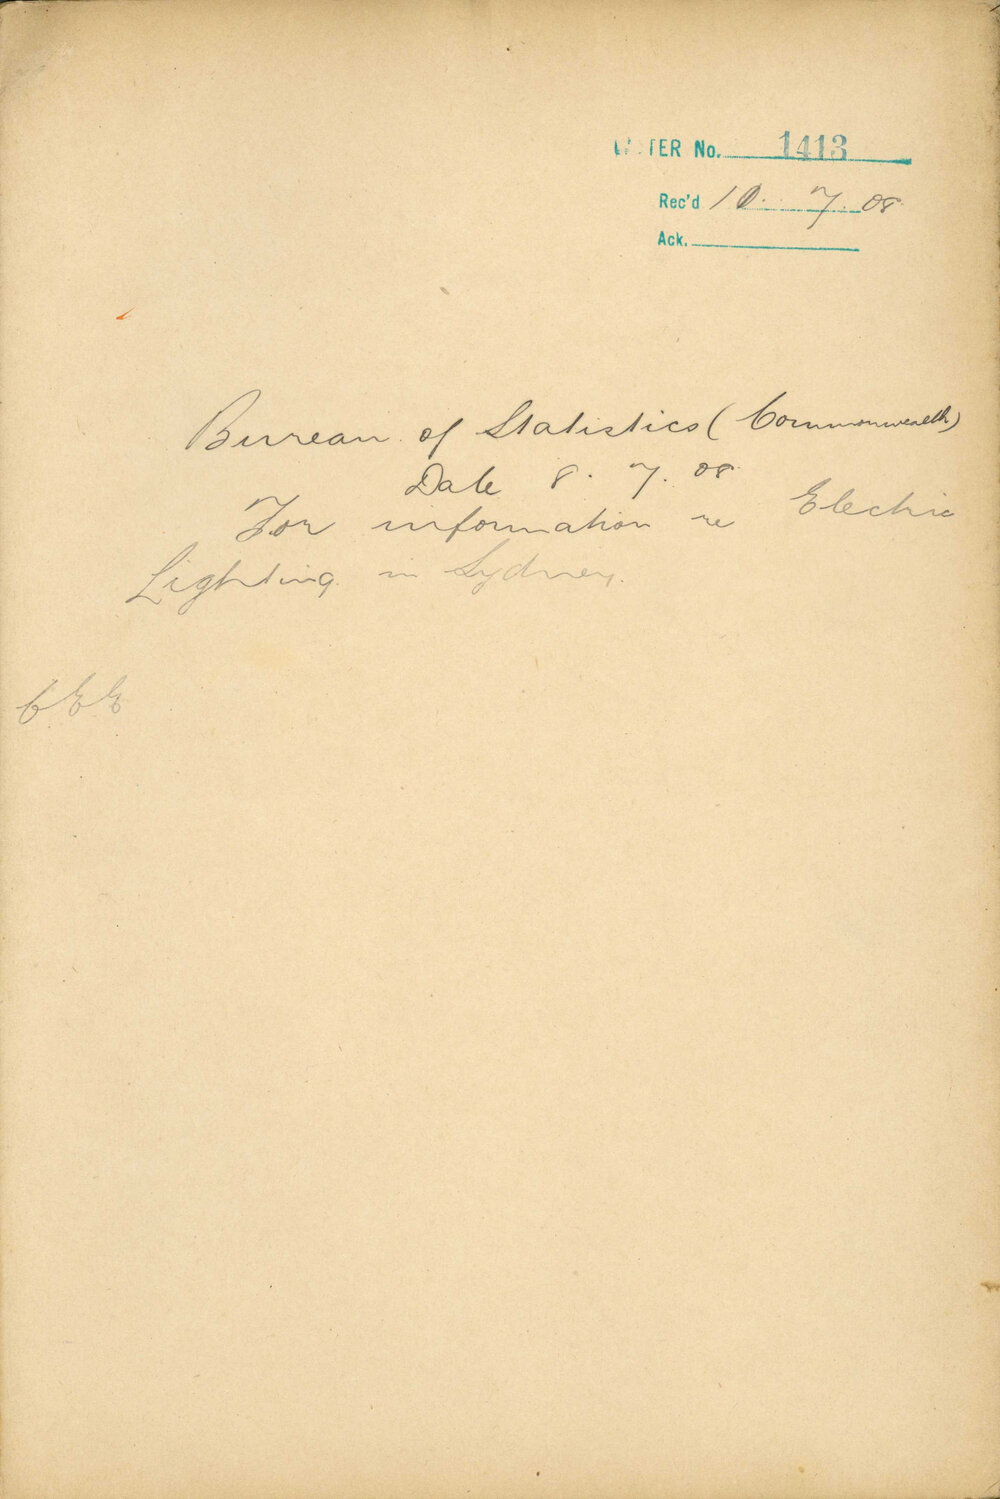 LETTER No. 1413
Rec'd 10. 7. 08
Ack.
Bureau of Statistics (Commonwealth)
Date 8. 7. 08
For information re Electric
Lighting in Sydney.
CEE